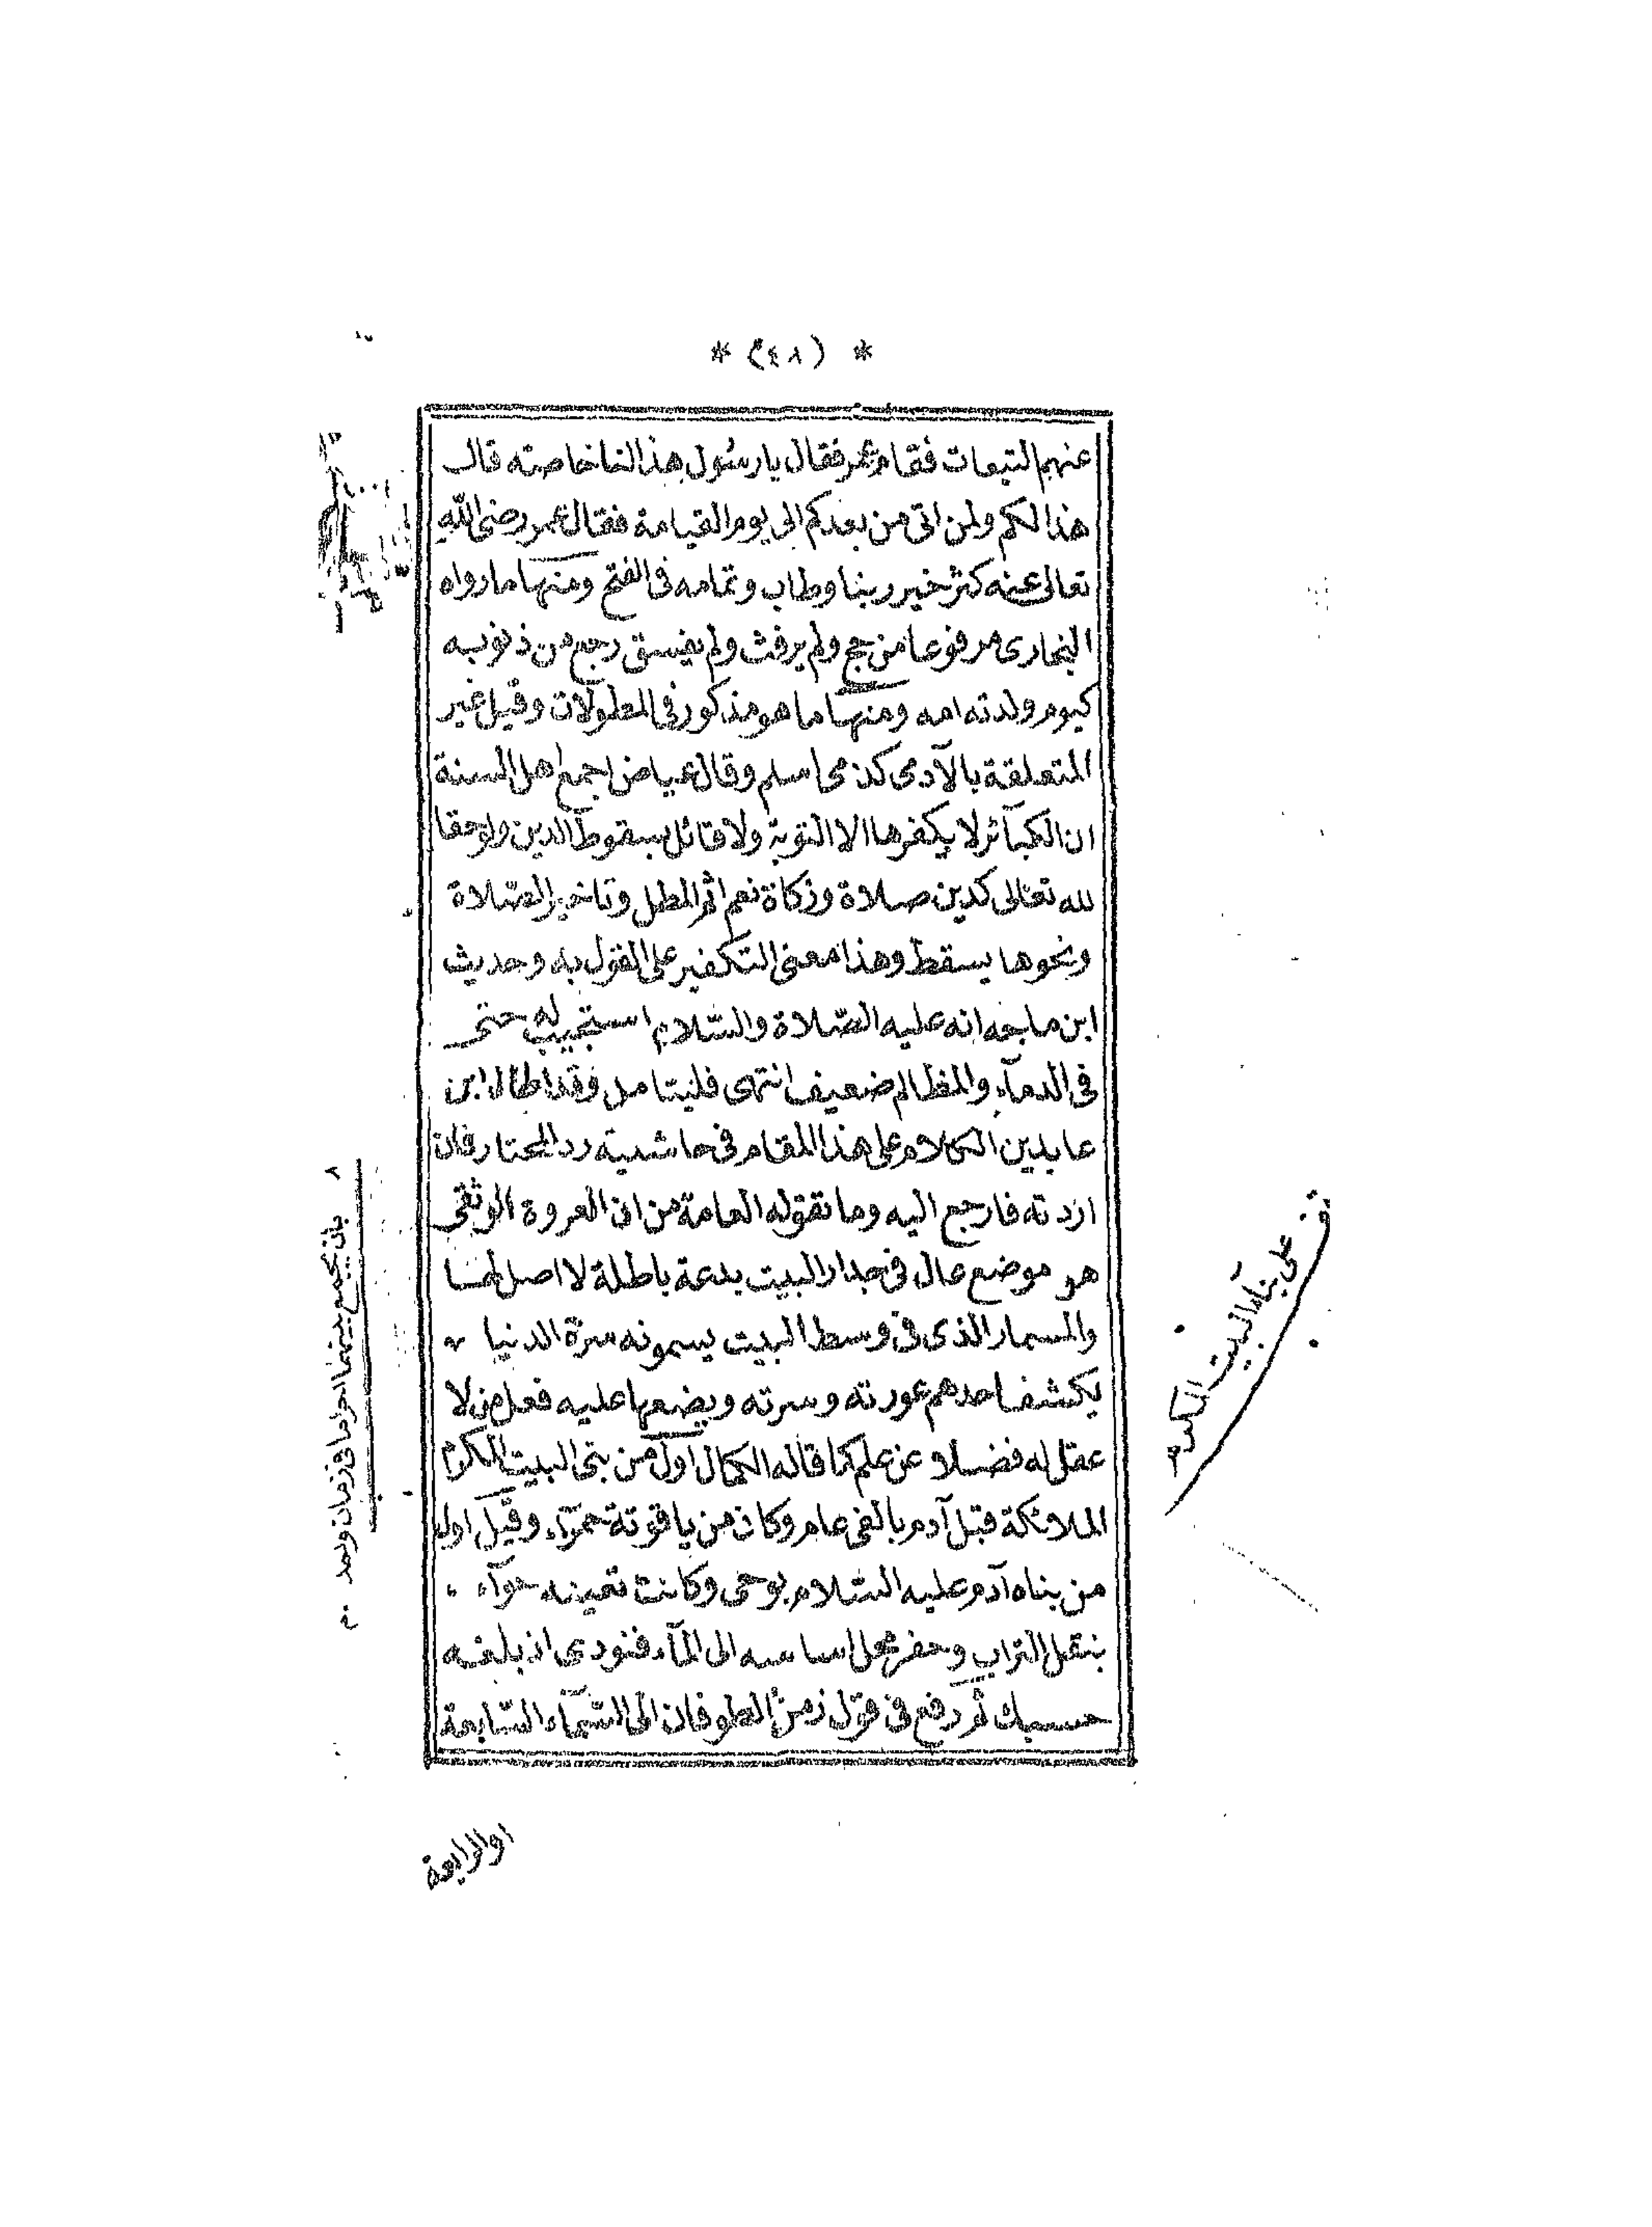 * (٤٨) *
عنهم التبعات فقام عمر فقال يا رسول هذا لنا خاصته قال
هذا لكم ولمن اتى من بعدكم الى يوم القيامة فقال عمر رضى الله
تعالى عنه كثر خير ربنا وطاب وتمامه فى الفتح ومنها ما رواه
البخارى مرفوعا من حج ولم يرفث ولم يفسق رجع من ذنوبه
كيوم ولدته امه ومنها ما هو مذكور فى المطولات وقيل غير
المتعلقة بالآدمى كذمى اسلم وقال عياض اجمع اهل السنة
ان الكبآئر لا يكفرها الا التوبة ولا قائل بسقوط الدين ولو حقا
لله تعالى كدين صلاة وزكاة نعم اثم المطل وتاخير الصّلاة
ونحوها يسقط وهذا معنى التكفير على القول به وحديث
ابن ماجه انه عليه الصّلاة والسّلام استجيب له حتى
فى الدمآء والمظالم ضعيف انتهى فليتامل وقد اطال ابن
عابدين الكلام على هذا المقام فى حاشيته رد المحتار فان
اردته فارجع اليه وما تقوله العامة من ان العروة الوثقى
هو موضع عال فى جدار البيت بدعة باطلة لا اصل لها
والمسمار الذى فى وسط البيت يسمونه سرة الدنيا
يكشف احدهم عورته وسرته ويضعها عليه فعل من لا
عقل له فضلا عن علم كما قاله الكمال اول من بنى البيت المكرم
الملائكة قبل آدم بالفى عام وكان من ياقوتة حمرآء وقيل اول
من بناه آدم عليه السّلام بوحى وكانت تعينه حوآء
بنقل التراب وحفر محل اساسه الى المآء فنودى اذ بلغه
حسبك ثم رفع فى قول زمن الطوفان الى السّمآء السّابعة
او الرابعة
على بنآء البيت المكرم
بان يجمع بينهما احراما فى زمان واحد م